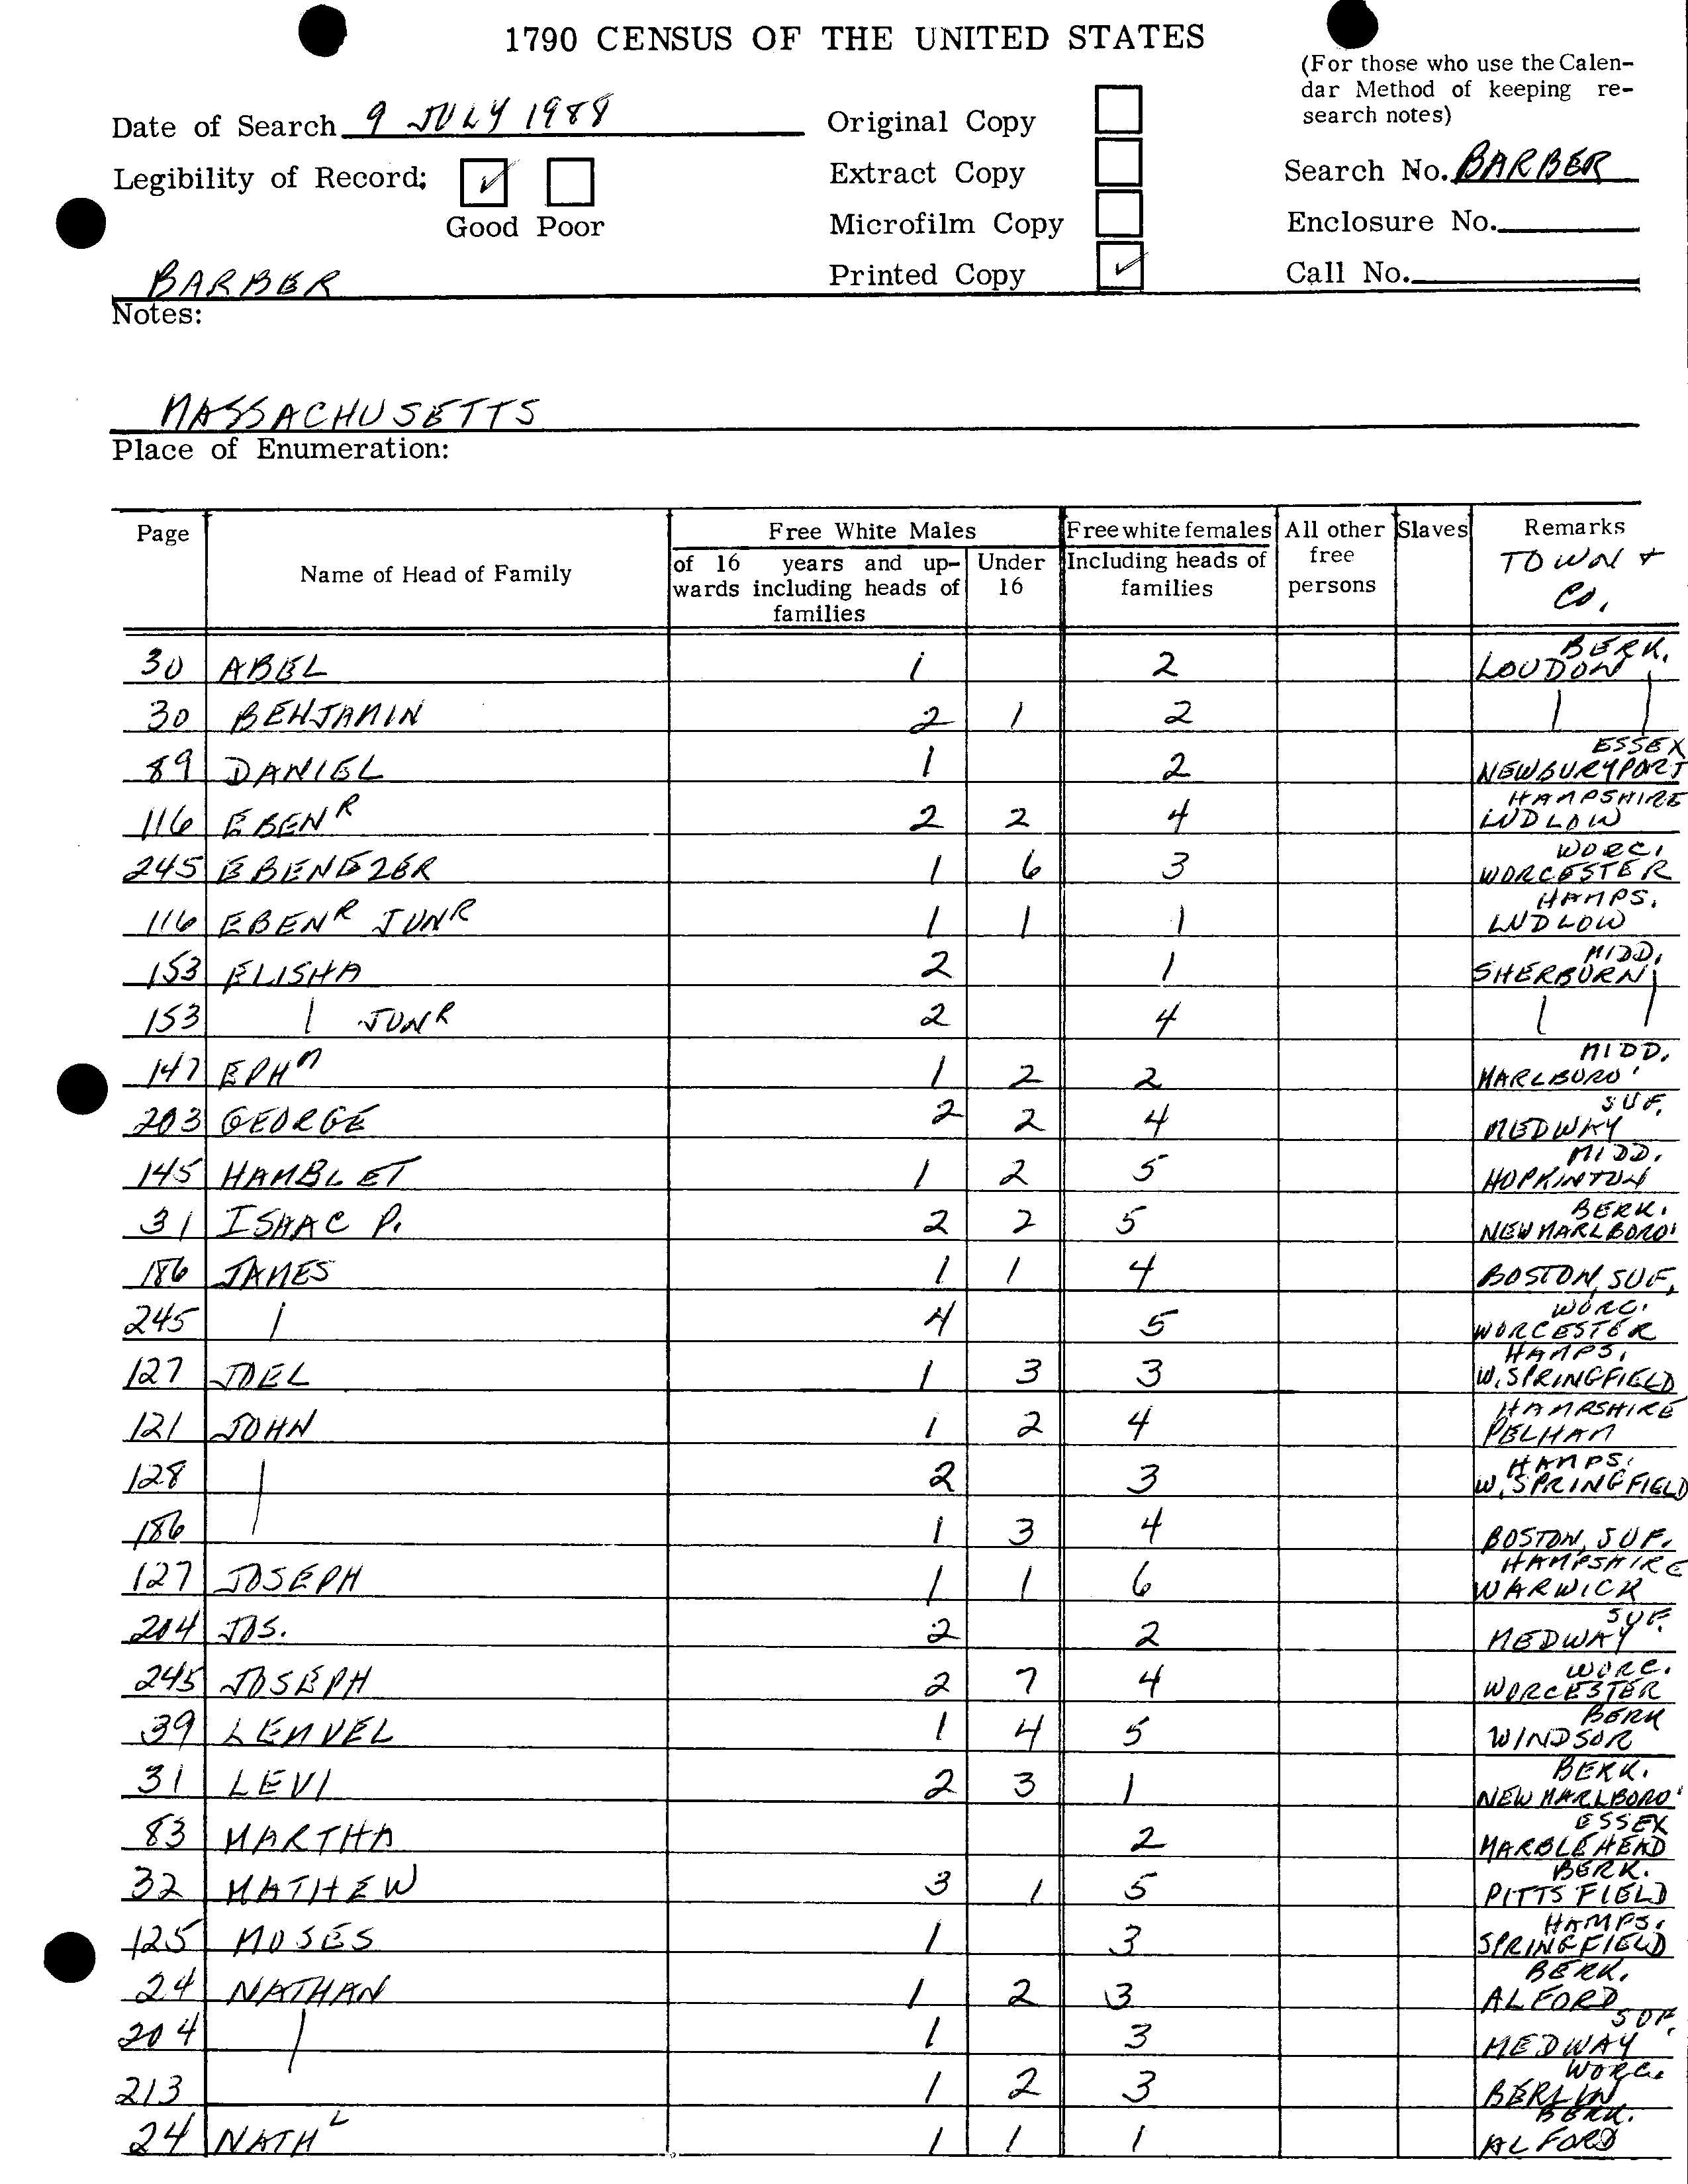 1790 CENSUS OF THE UNITED STATES
(For those who use the Calen-
dar Method of keeping re-
search notes)
Date of Search 9 JULY 1988
Original Copy
Legibility of Record:
Good Poor
Extract Copy
Search No. BARBER
Microfilm Copy
Enclosure No.
BARBER
Printed Copy
Call No.
Notes:
MASSACHUSETTS
Place of Enumeration:
Page
Name of Head of Family
Free White Males
of 16 years and up-
wards including heads of
families
Under
16
Free white females
Including heads of
families
All other
free
persons
Slaves
Remarks
TOWN +
CO.
30 ABEL 1 2 LOUDON BERK.
30 BENJAMIN 2 1 2
89 DANIEL 1 2 NEWBURYPORT ESSEX
116 EBENR 2 2 4 LUDLOW HAMPSHIRE
245 EBENEZER 1 6 3 WORCESTER WORC.
116 EBENR JUNR 1 1 1 LUDLOW HAMPS.
153 ELISHA 2 1 SHERBURN MIDD.
153 | JUNR 2 4
147 EPHM 1 2 2 MARLBORO' MIDD.
203 GEORGE 2 2 4 MEDWAY SUF.
145 HAMBLET 1 2 5 HOPKINTON MIDD.
31 ISAAC P. 2 2 5 NEW MARLBORO' BERK.
186 JAMES 1 1 4 BOSTON, SUF.
245 | 4 5 WORCESTER WORC.
127 JOEL 1 3 3 W. SPRINGFIELD HAMPS.
121 JOHN 1 2 4 PELHAM HAMPSHIRE
128 | 2 3 W. SPRINGFIELD HAMPS.
186 | 1 3 4 BOSTON, SUF.
127 JOSEPH 1 1 6 WARWICK HAMPSHIRE
204 JOS. 2 2 MEDWAY SUF.
245 JOSEPH 2 7 4 WORCESTER WORC.
39 LEMUEL 1 4 5 WINDSOR BERK
31 LEVI 2 3 1 NEW MARLBORO' BERK.
83 MARTHA 2 MARBLEHEAD ESSEX
32 MATHEW 3 1 5 PITTSFIELD BERK.
125 MOSES 1 3 SPRINGFIELD HAMPS.
24 NATHAN 1 2 3 ALFORD BERK.
204 | 1 3 MEDWAY SUF.
213 1 2 3 BERLIN WORC.
24 NATHL 1 1 1 ALFORD BERK.